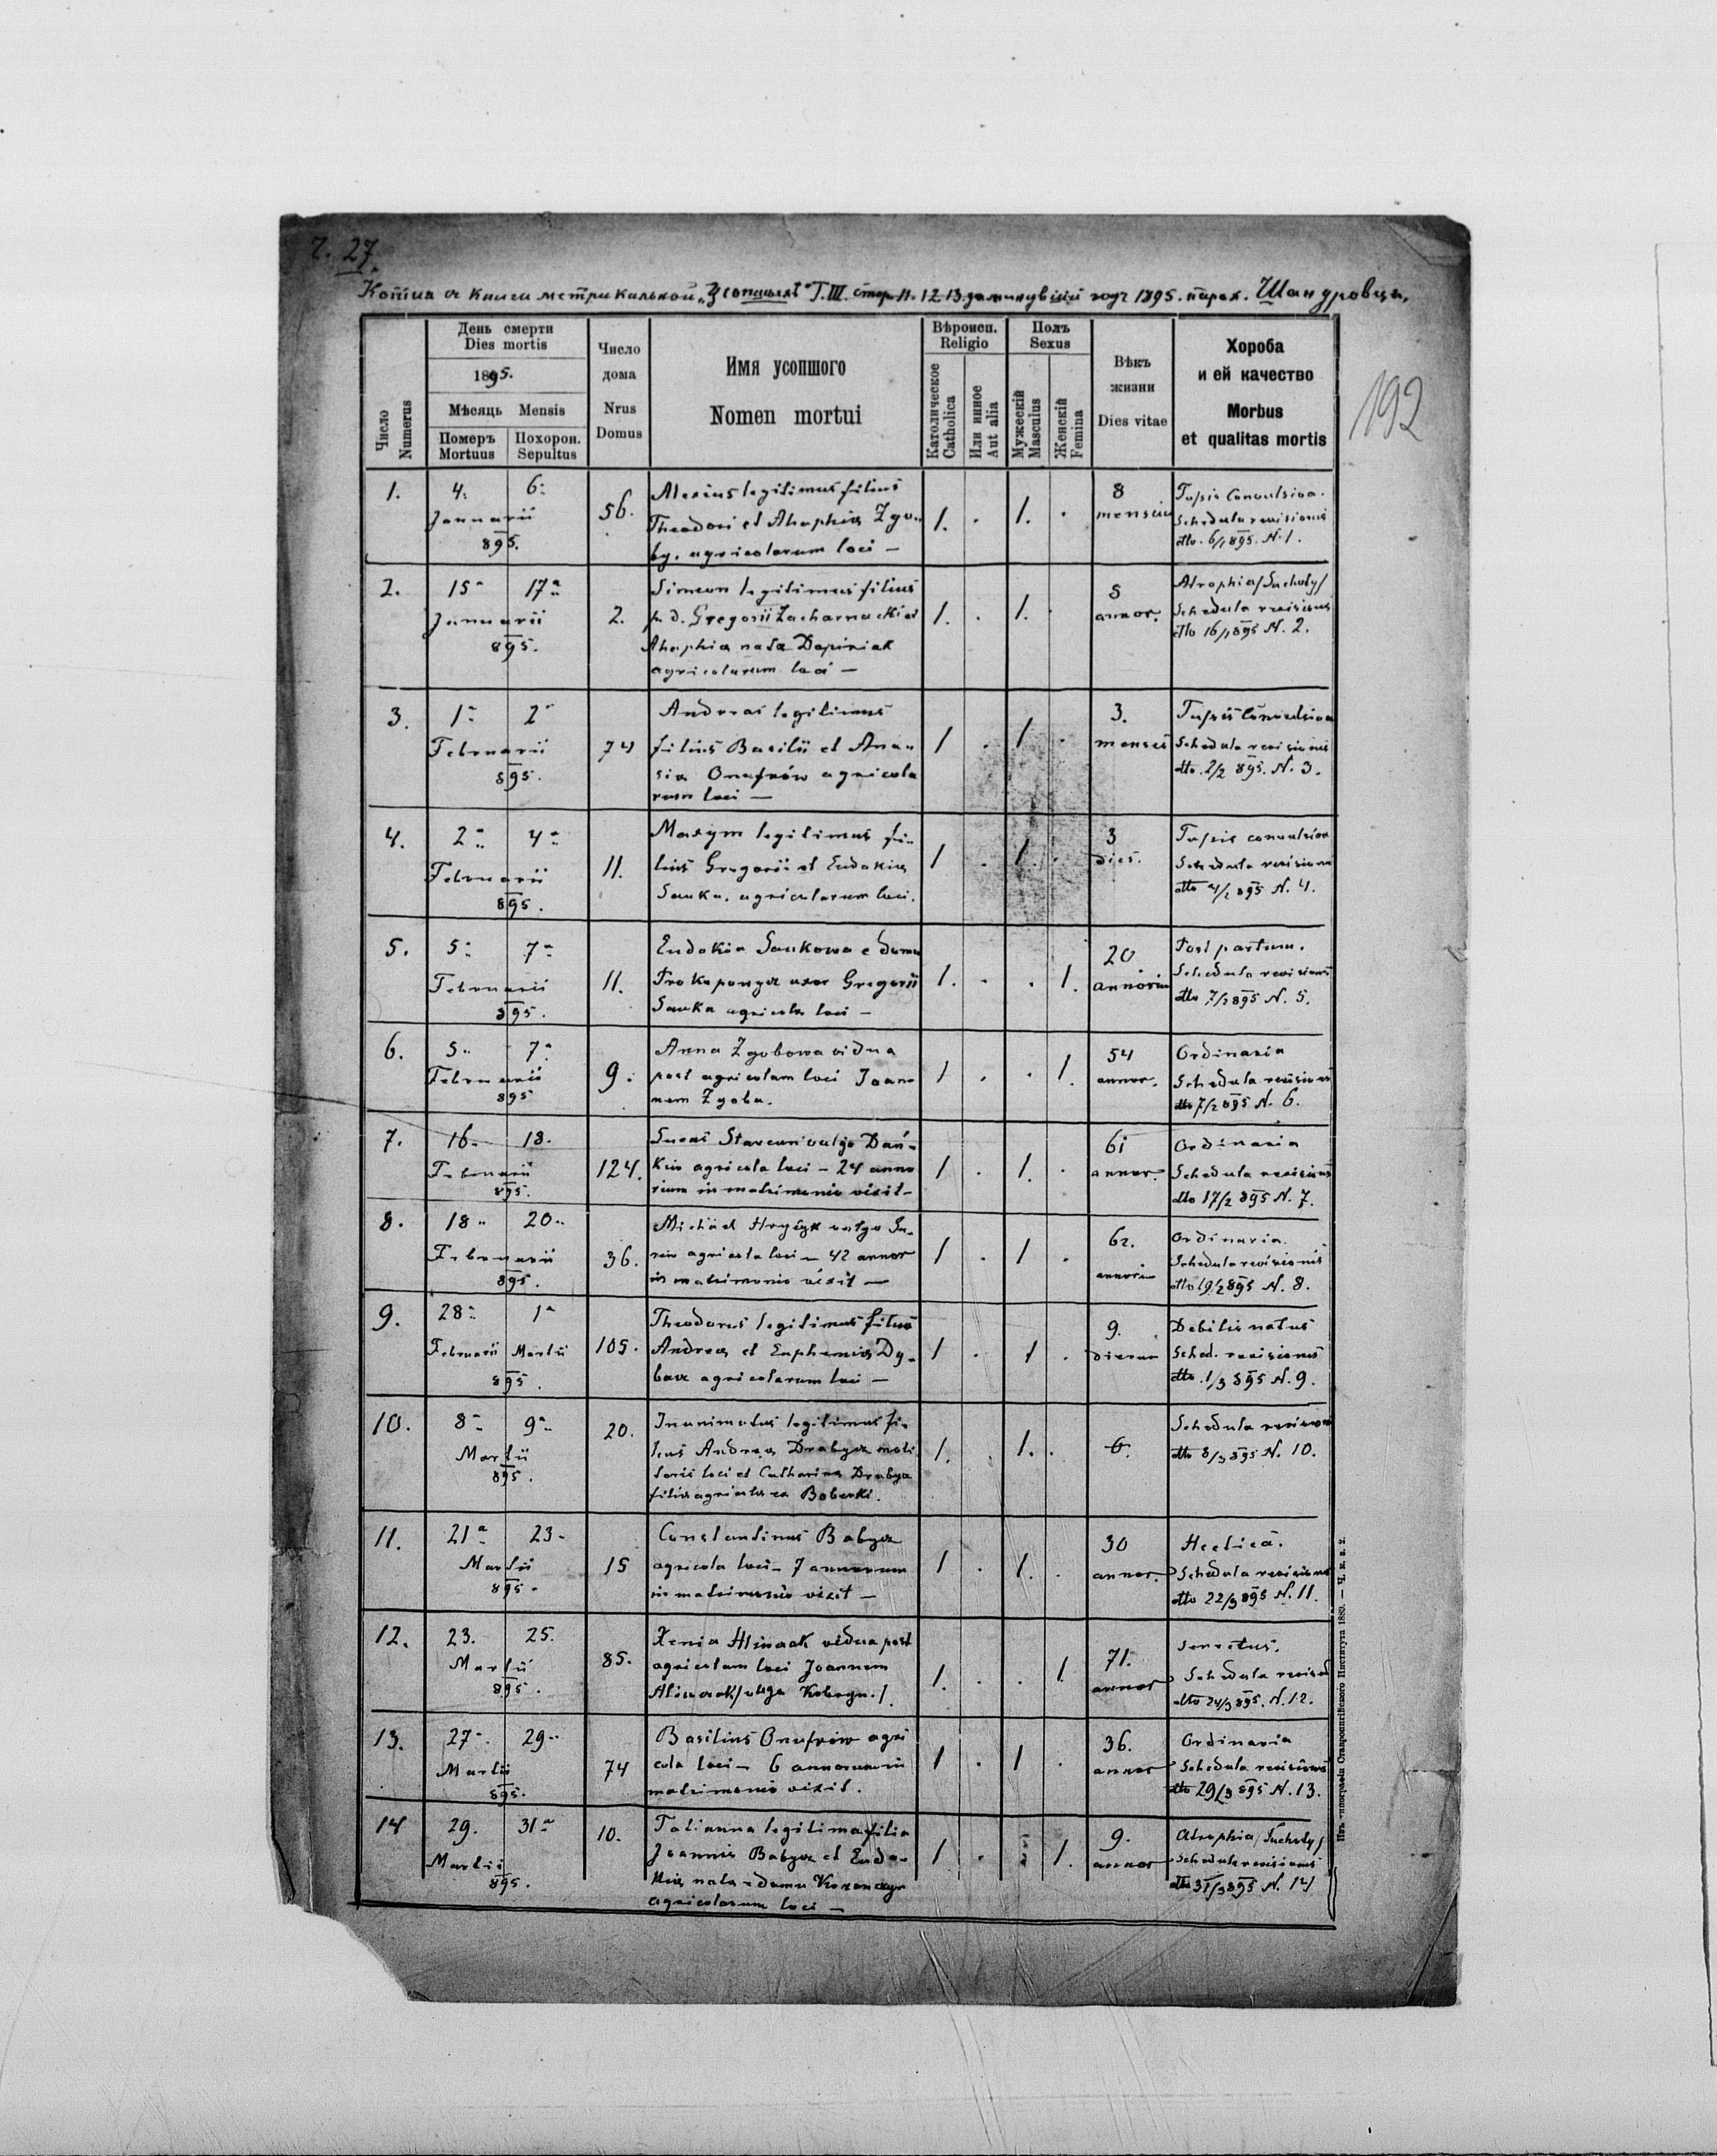 Ч. 27.
Копия съ книги метрикальной „Усопшыхъ" Т. III. стор. 11. 12. 13. за минувшій годъ 1895. парох. Шандровци.
192
Число
Numerus
День смерти
Dies mortis
1895.
Мѣсяць Mensis
Померъ
Mortuus
Похорон.
Sepultus
Число
дома
Nrus
Domus
Имя усопшого
Nomen mortui
Вѣроисп.
Religio
Католическое
Catholica
Или инное
Aut alia
Полъ
Sexus
Мужескій
Masculus
Женскій
Femina
Вѣкъ
жизни
Dies vitae
Хороба
и ей качество
Morbus
et qualitas mortis
1. 4. 6. 56. Alexius legitimus filius 1. . 1. . 8 Tussis Convulsiva.
Januarii Theodori et Ahaphia Zgo- mensiu Schedula revisionis
895. by, agricolarum loci — dtto. 6/1 895. N. 1.
2. 15 17 2. Simeon legitimus filius 1. . 1. . 5 Atrophia /Suchoty/
Januarii p. d. Gregorii Zacharna annor. Schedula revisionis
895. Ahaphia nata dtto 16/1 895 N. 2.
agricolarum loci —
3. 1 2 74 Andreas legitimus 1 . 1 . 3. Tussis Convulsiva
Februarii filius Basilii et Ana- menses Schedula revisionis
895. sia Onufrów agricola dtto. 2/2 895. N. 3.
rum loci —
4. 2 4 11. Maxym legitimus fi- 1 . 1. . 3 Tussis convulsiva
Februarii lius Gregorii et Eudokia dies. Schedula revisionis
895. Sauka. agricolarum loci. dtto 4/2 895 N. 4.
5. 5 7 11. Eudokia Saukowa e domo 1. . . 1. 20 Post partum.
Februarii uxor Gregorii annorum Schedula revisionis
895. Sauka agricola loci — dtto 7/2 895 N. 5.
6. 5 7 9. Anna Zgobowa vidua 1 . . 1. 54 Ordinaria
Februarii post agricolam loci Joan- annor. Schedula revisionis
895 nem Zgoba. dtto 7/2 895 N. 6.
7. 16 18. 124. vulgo Dań- 1 . 1. . 61 Ordinaria
Februarii kiw agricola loci — 24 anno annor. Schedula revisionis
895. rum in matrimonio vixit — dtto 17/2 895 N. 7.
8. 18 20 36. Michael Hrycyk vulgo 1 . 1 . 62. Ordinaria.
Februarii agricola loci — 42 annor annorum Schedula revisionis
895. in matrimonio vixit — dtto 19/2 895 N. 8.
9. 28 1 105. Theodorus legitimus filius 1 . 1 . 9. Debilis natus
Februarii Martii Andrea et Euphemia Dy- dierum Sched. revisionis
895. agricolarum loci — dtto. 1/3 895 N. 9.
10. 8 9 20. Inanimatus legitimus fi- 1. . 1. . 0. Schedula revisionis
Martii lius Andrea Drabyk moli dtto 8/3 895 N. 10.
895. loci et Catharina Drabyk
filia agricola ex Boberki.
11. 21 23 15 Constantinus Babyak 1 . 1. . 30 Hectica.
Martii agricola loci — 7 annorum annor. Schedula revisionis
895. in matrimonio vixit — dtto 22/3 895 N. 11.
12. 23. 25. 85. Xenia Hliwak vidua post 1. . . 1 71. Senectus.
Martii agricolam loci Joannem annor Schedula revision
895. Hliwak /vulgo dtto 24/3 895. N. 12.
13. 27 29 74 Basilius Onufrów agri 1 . 1 . 36. Ordinaria
Martii cola loci — 6 annorum in annor Schedula revisionis
895. matrimonio vixit. dtto 29/3 895 N. 13.
14 29. 31 10. Tatianna legitima filia 1 . . 1. 9. Atrophia /Suchoty/
Martii Joannis Babyak et Eudo- annor Schedula revisionis
895. kia nata e domu dtto 31/3 895 N. 14
agricolarum loci —
Изъ типографіи Ставропигійского Института 1889. — Ч. к. а. 2.